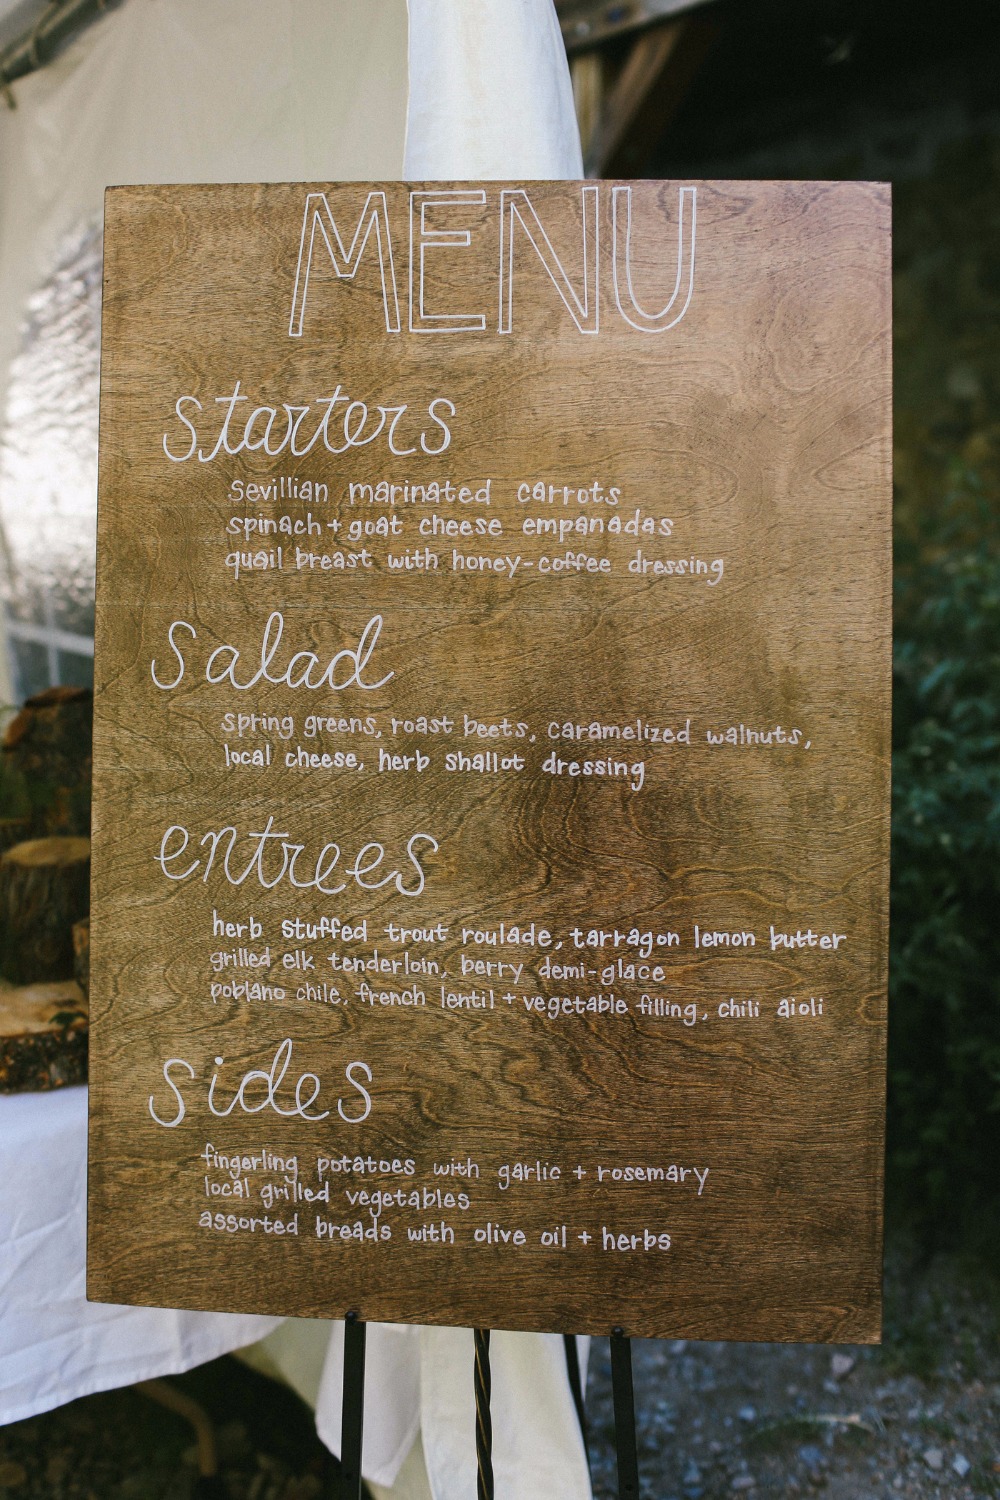 MENU
starters
sevillian marinated carrots
spinach + goat cheese empanadas
quail breast with honey-coffee dressing
Salad
spring greens, roast beets, caramelized walnuts,
local cheese, herb shallot dressing
entrees
herb stuffed trout roulade, tarragon lemon butter
grilled elk tenderloin, berry demi-glace
poblano chile, french lentil + vegetable filling, chili aioli
sides
fingerling potatoes with garlic + rosemary
local grilled vegetables
assorted breads with olive oil + herbs